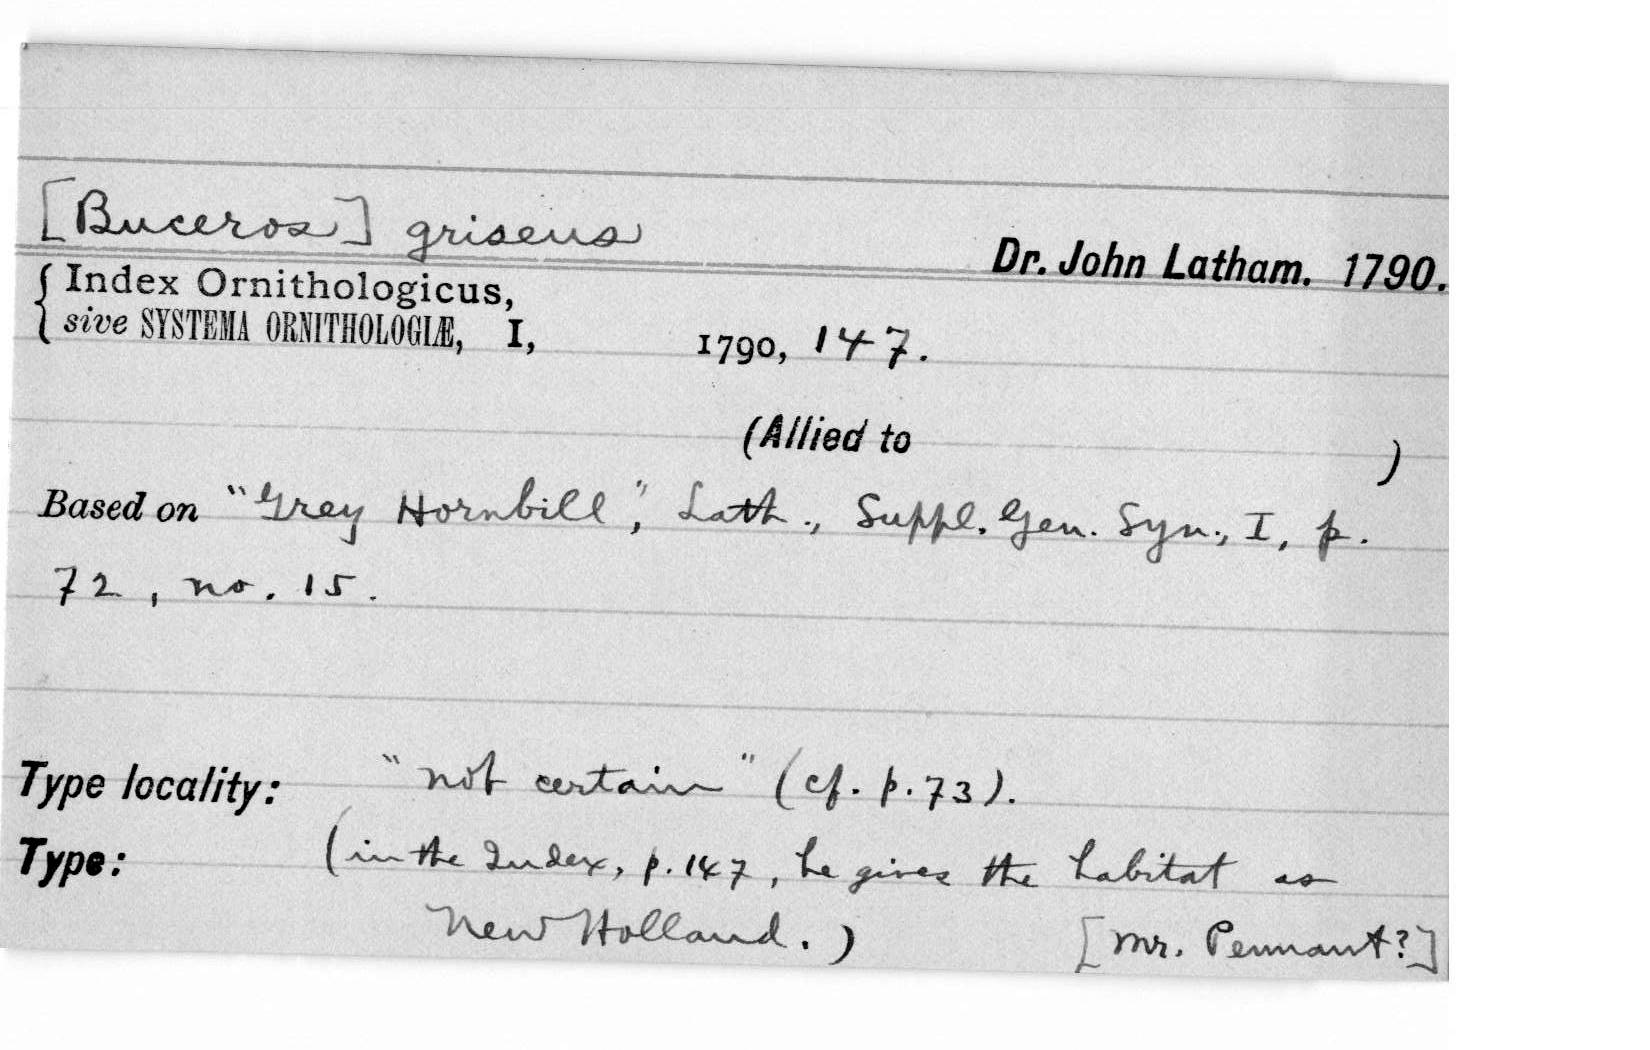 [Buceros] griseus
Dr. John Latham. 1790.
{ Index Ornithologicus,
sive SYSTEMA ORNITHOLOGIÆ, I, 1790, 147.
(Allied to )
Based on "Grey Hornbill", Lath., Suppl. Gen. Syn., I, p.
72, no. 15.
Type locality: "not certain" (cf. p. 73).
Type: (in the Index, p. 147, he gives the habitat as
New Holland.) [Mr. Pennant?]